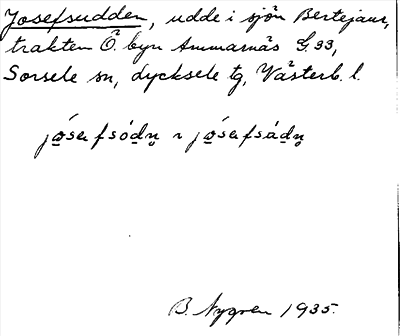 Josefsudden, udde i sjön Bertejaur,
trakten Ö. byn Ammarnäs G.33,
Sorsele sn, Lycksele tg, Västerb. l.
jó̱safsódn̥ ~ jó̱safsádn̥
B. Nygren 1935.